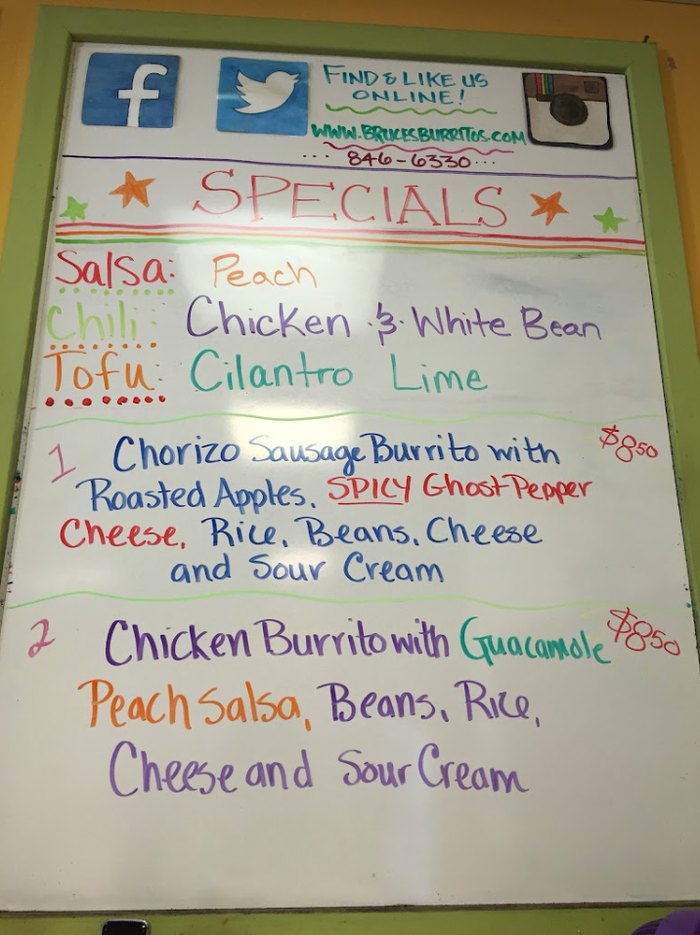 f
FIND & LIKE US
ONLINE!
WWW.BRUCESBURRITOS.COM
... 846-6330 ...
SPECIALS
Salsa: Peach
Chili: Chicken & White Bean
Tofu: Cilantro Lime
1 Chorizo Sausage Burrito with $8.50
Roasted Apples, SPICY Ghost Pepper
Cheese, Rice, Beans, Cheese
and Sour Cream
2 Chicken Burrito with Guacamole $8.50
Peach Salsa, Beans, Rice,
Cheese and Sour Cream